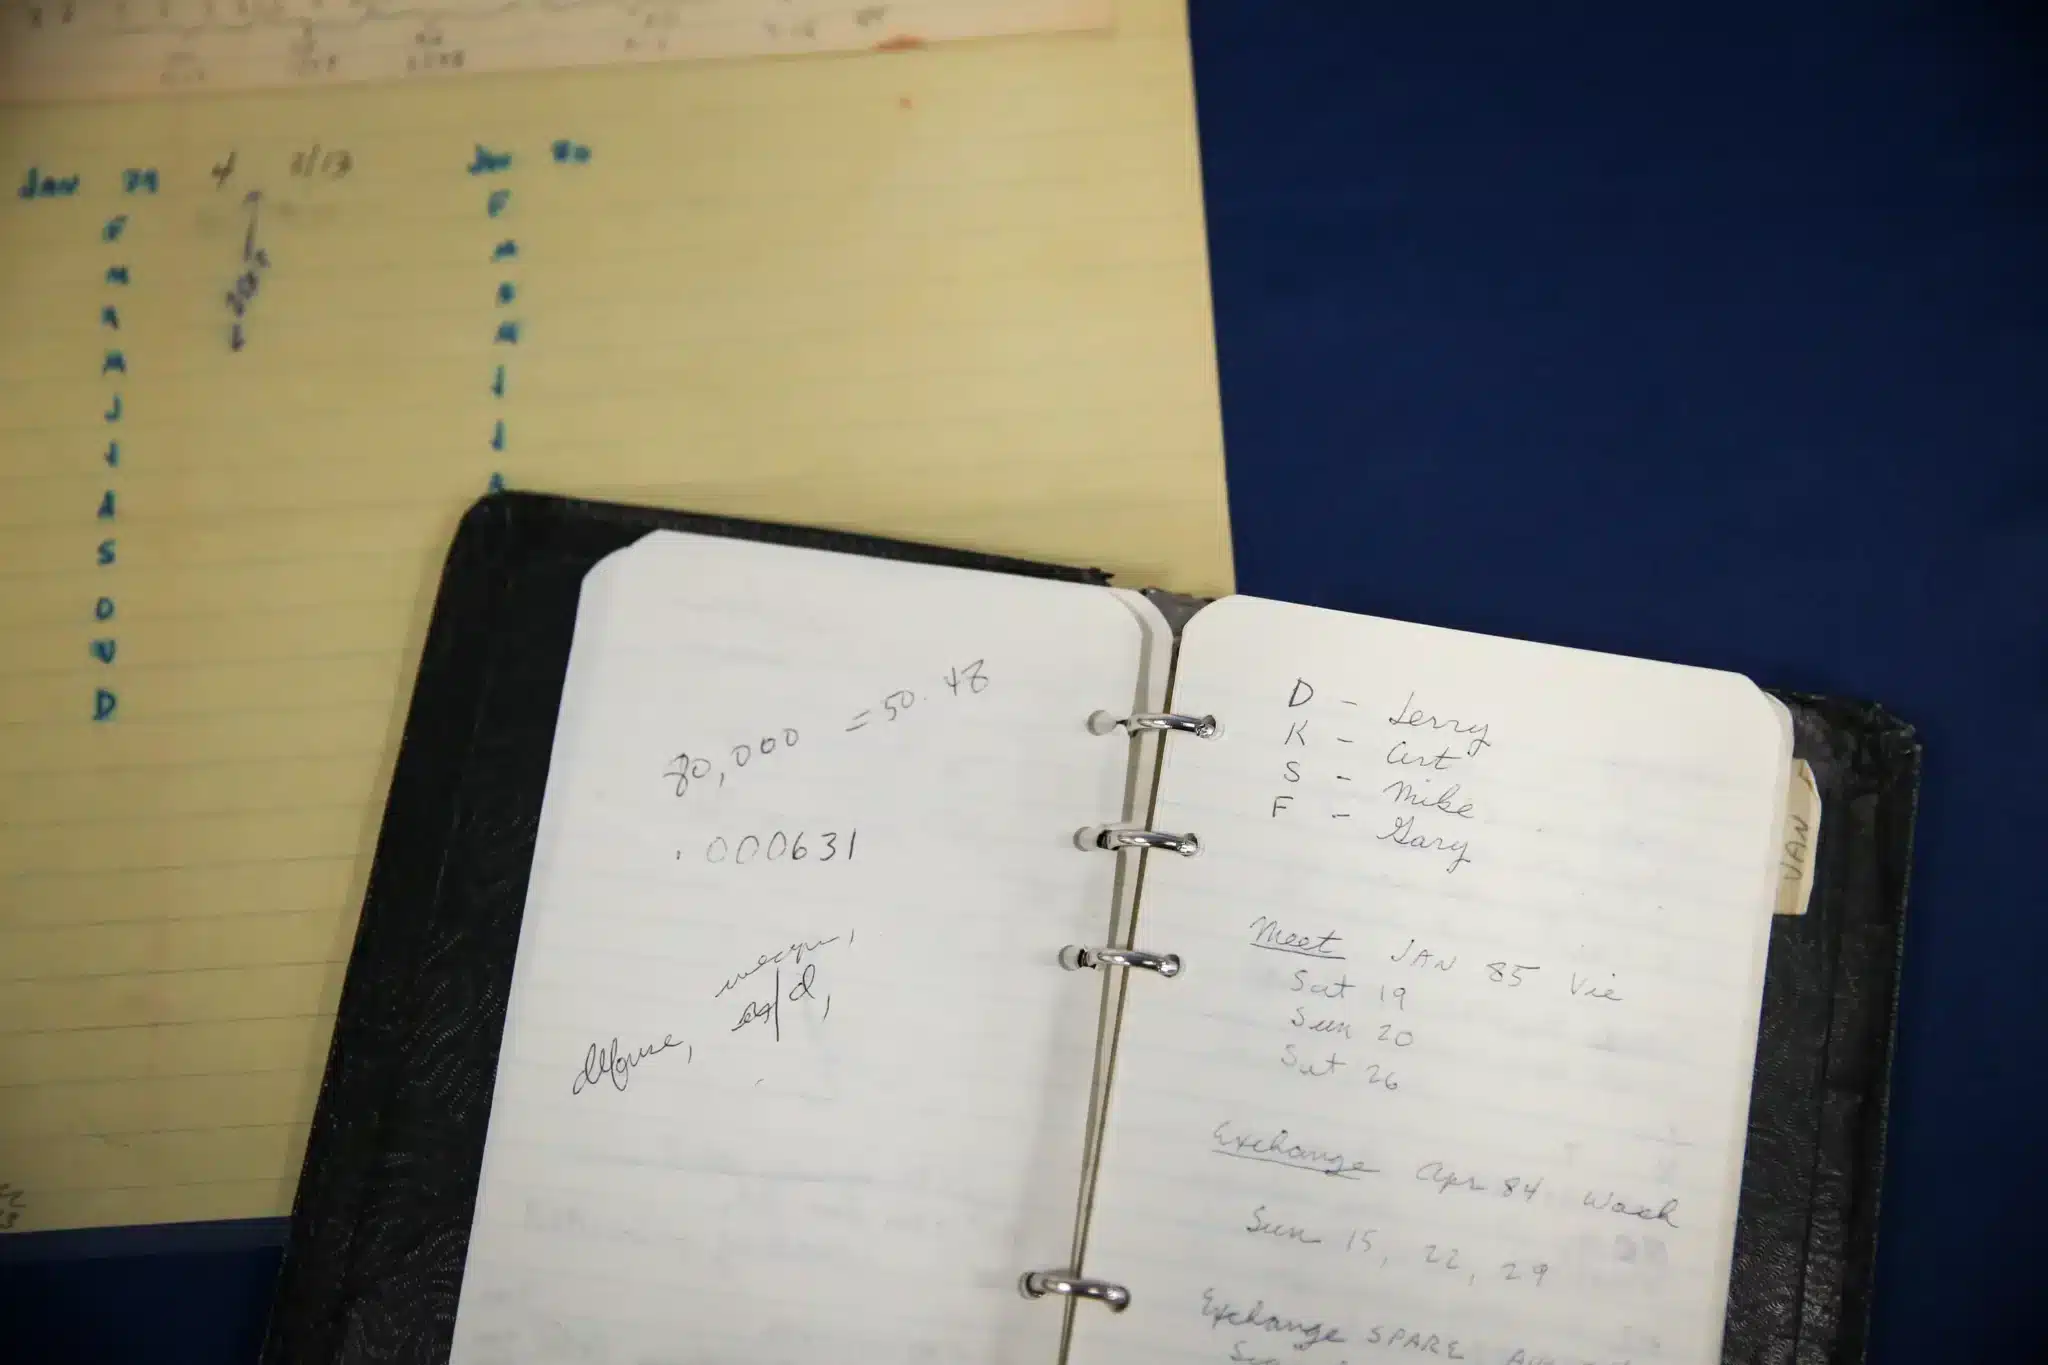 Jan 79 4 3/13
F
M
A
M
J
J
A
S
O
N
D
Jan 80
F
M
A
M
J
J
A
80,000 = 50.48
.000631
D - Jerry
K - Art
S - Mike
F - Gary
JAN
Meet JAN 85 Vie
Sat 19
Sun 20
Sat 26
Exchange Apr 84 Wash
Sun 15, 22, 29
Exchange SPARE